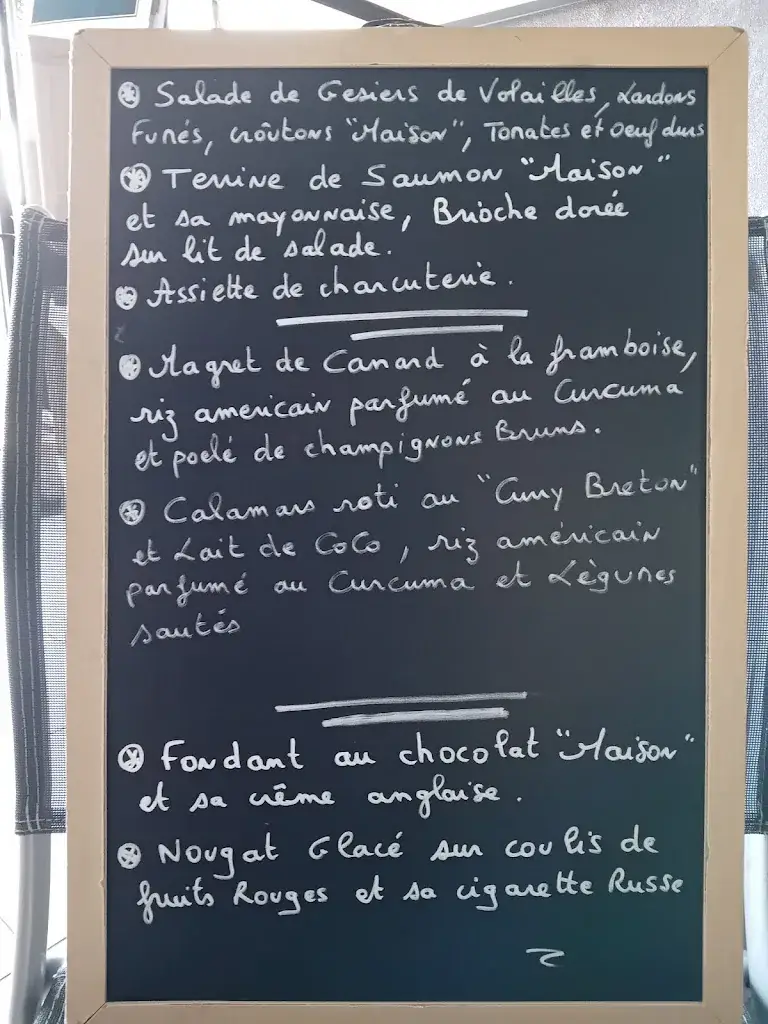 Salade de Gesiers de Volailles, Lardons
Fumés, croûtons "Maison", Tomates et Oeuf durs
Terrine de Saumon "Maison"
et sa mayonnaise, Brioche dorée
sur lit de salade.
Assiette de charcuterie.
Magret de Canard à la framboise,
riz americain parfumé au Curcuma
et poelé de champignons Bruns.
Calamars roti au "Curry Breton"
et Lait de CoCo, riz américain
parfumé au Curcuma et Lègumes
sautés
Fondant au chocolat "Maison"
et sa crême anglaise.
Nougat Glacé sur coulis de
fruits Rouges et sa cigarette Russe